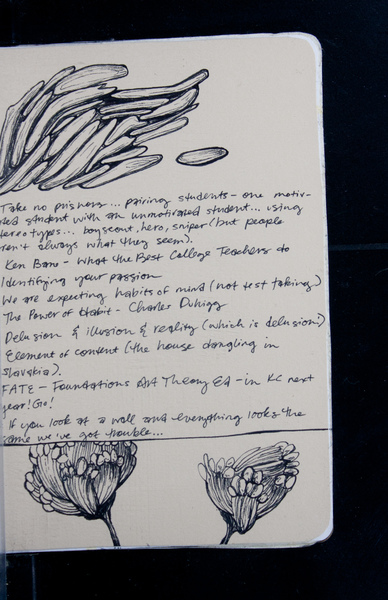 Take no prisoners... pairing students - one motiv-
ated student with an unmotivated student... using
stereotypes... boy scout, hero, sniper (but people
aren't always what they seem).
Ken Bain - What the Best College Teachers do
Identifying your passion
We are expecting habits of mind (not test taking)
The Power of Habit - Charles Duhigg
Delusion & illusion & reality (which is delusion)
Element of content (the house dangling in
Slovakia).
FATE - Foundations Art Theory Ed - in KC next
year! Go!
If you look at a wall and everything looks the
same we've got trouble...